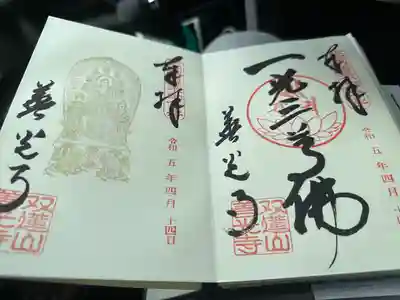 奉拝
令和五年四月十四日
一光三尊佛
善光寺
双蓮山
善光寺
奉拝
令和五年四月十四日
善光寺
双蓮山
善光寺